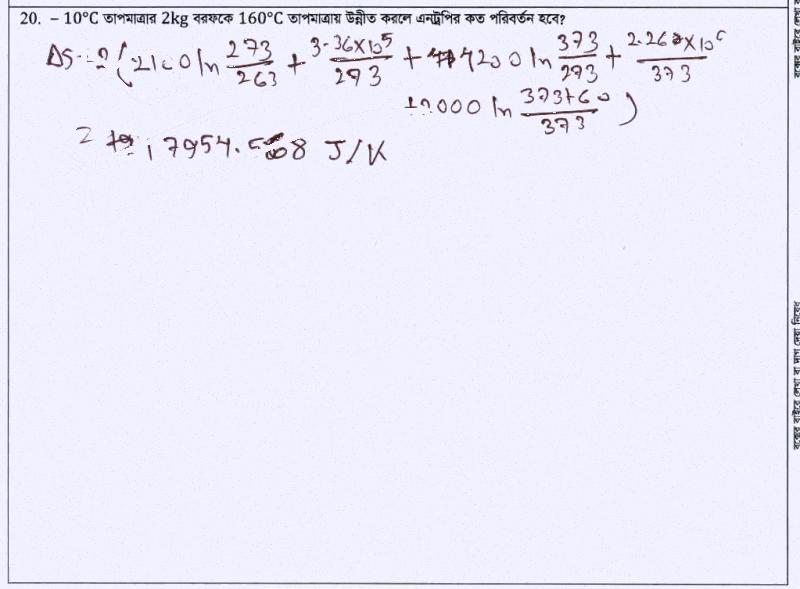 20. – 10°C তাপমাত্রার 2kg বরফকে 160°C তাপমাত্রায় উন্নীত করলে এনট্রপির কত পরিবর্তন হবে?
ΔS = 2 ( 2100 ln 273/263 + 3.36×10⁵/273 + 4200 ln 373/273 + 2.26×10⁶/373
+2000 ln 373+60/373 )
17954. 8 J/K
বক্সের বাইরে লেখা বা দাগ দেয়া নিষেধ